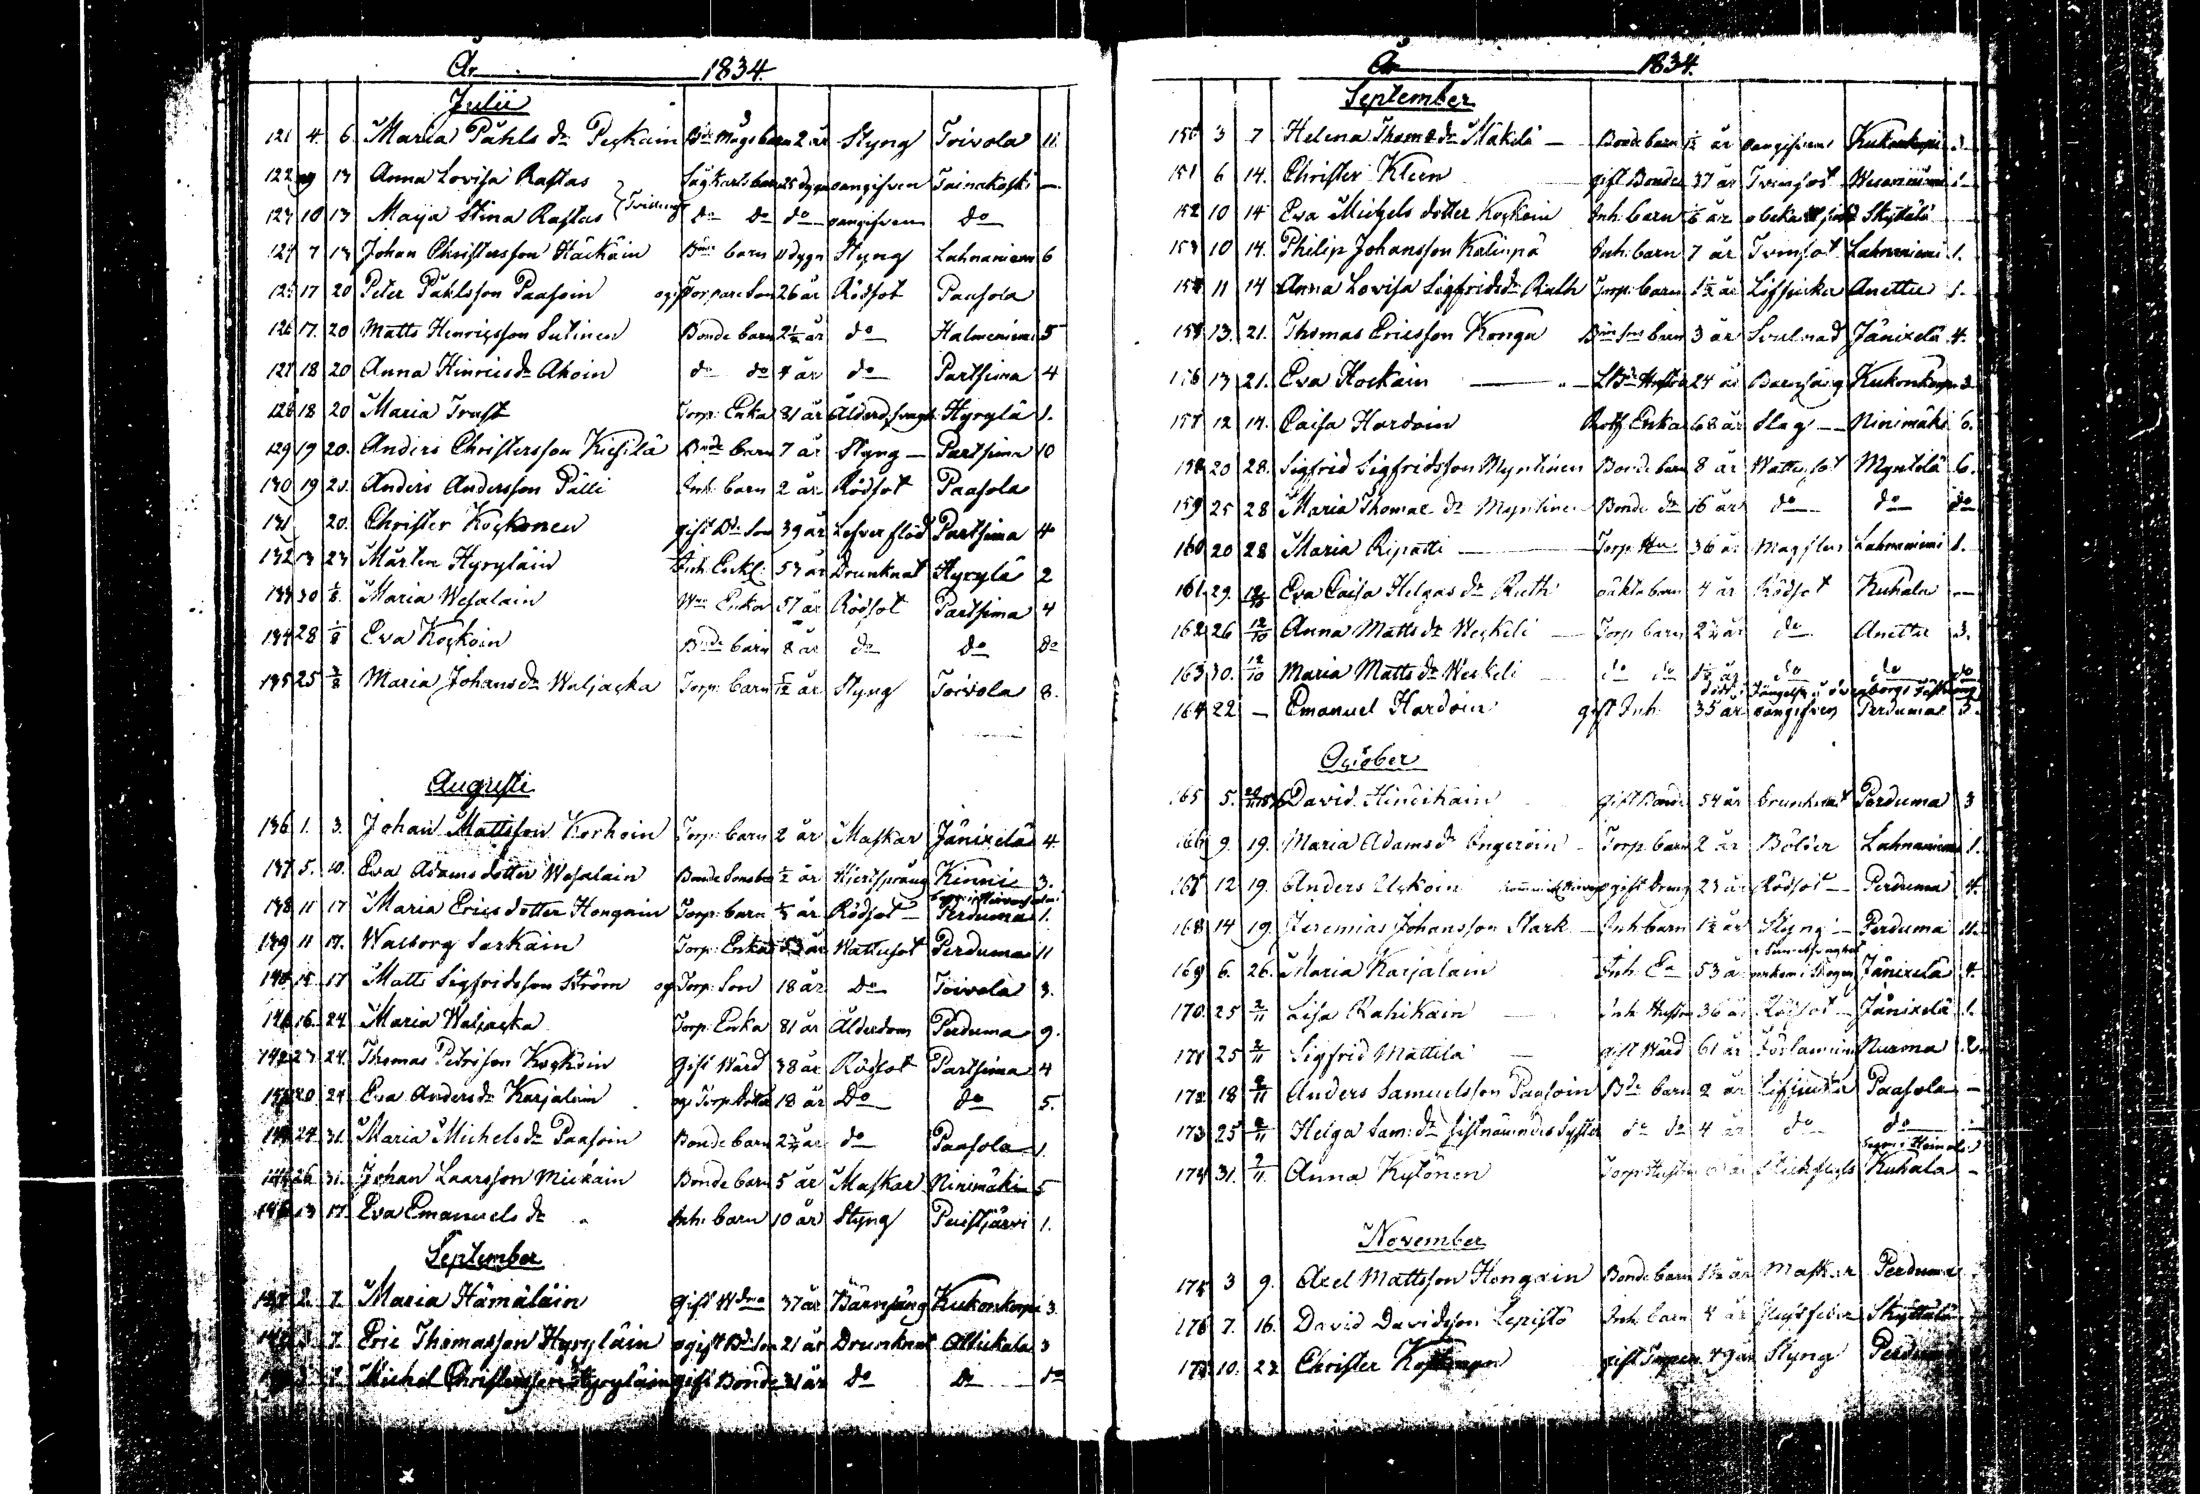 År 1834.
Julii
121 4. 6. Maria Påhls dr Peskain Bde Mågs barn 2 år Styng Toivola 11.
122 13 Anna Lovisa Rastas Sågkarls barn 25 dygn oangifven Tainakoski —
123 10 13 Maija Stina Rastas } Tvillingar do do do oangifven do
124 7 13 Johan Christersson Häckäin Bonde barn 11 dygn Styng Lahnaniemi 6
125 17 20 Peter Påhlsson Paasoin ogift Torpare Son 26 år Rödsot Paasola
126 17. 20 Matts Henricsson Sutinen Bonde barn 2½ år do Halmeniemi 5
127 18 20 Anna Hinrics dr Ahoin do do 4 år do Partsima 4
128 18 20 Maria Trast Torp: Enka 81 år Ålderd. svagh. Hyrylä 1.
129 19 20. Anders Christersson Kiesilä Bonde barn 7 år Styng — Partsima 10
130 19 20. Anders Andersson Pälli Inh: barn 2 år Rödsot Paasola
131 20. Christer Kockonen gift Bde Son 39 år Lefverflöd Partsima 4
132 13 23 Mårten Hyryläin Inh: Enkl: 53 år Drunknat Hyrylä 2
133 30 1/8. Maria Wesalain Enka 57 år Rödsot Partsima 4
134 28 1/8 Eva Kockoin Bonde barn 8 år do do do
135 25 3/8 Maria Johans dr Waljacka Torp: barn 5/12 år Styng Toivola 8.
Augusti
136 1. 3. Johan Mattsson Korhoin Torp: barn 2 år Maskar Jänixelä 4
137 5. 10. Eva Adams dotter Wesalain Bonde Sons barn ½ år Hjertsprång Kinnie 3.
138 11 17 Maria Erics dotter Hongain Torp: barn år Rödsot — Perduma 1.
139 11 17. Walborg Sarkain Torp: Enka 53 år Wattusot Perduma 11
140 15 17 Matts Sigfridsson Ström og Torp: Son 18 år Do Toivola 3.
141 16. 24. Maria Waljacka Torp: Enka 81 år Ålderdom Perduma 9.
142 23 24. Thomas Petersson Kockoin Gift Wärd 38 år Rödsot Partsima 4
143 20 24 Eva Anders dr Karjalain og: Torp. dotter 18 år Do do 5.
144 24 31. Maria Michels dr Paasoin Bonde barn 2¾ år do Paasola 1.
145 26 31. Johan Laarsson Mickäin Bonde barn 5 år Maskar Ninimäki 5
146 13 17. Eva Emanuels dr Inh: barn 10 år Styng Puistjärvi 1.
September
147 2. 7. Maria Hämäläin Gift Wdna 37 år Barnsäng Kukonkorpi 3.
148 3. 7. Eric Thomasson Hyryläin ogift Bde Son 21 år Drunknat Allikala 3
7. Michel Christersson Hyryläin gift Bonde 31 år do do do
År 1834.
September
150 3 7 Helena Thomæ dr Mäkilä — Bonde barn ½ år oangifvens Kukonkorpi 3
151 6 14. Christer Kleen gift Bonde 37 år Tvinsot
152 10 14 Eva Michels dotter Kockoin Inh: barn år obekant sjukd Skyttälä
153 10 14. Philip Johansson Kalispä Inh: barn 7 år Tvinsot Lahnaniemi 1.
154 11 14 Anna Lovisa Sigfrids dr Ruth Torp: barn 1½ år Lifsjuka Anettu 1.
155 13. 21. Thomas Ericsson Konga Bde Sons barn 3 år Svulnad Jänixelä 4.
156 13 21. Eva Hockain 24 år Barnsäng Kukonkorpi 3
157 12 14. Caisa Hardoin Rotf Enka 68 år Slag — Ninimäki 6.
158 20 28. Sigfrid Sigfridsson Myntinen Bonde barn 8 år Wattusot Myntilä 6.
159 25 28 Maria Thomæ dr Myntinen Bonde dr 16 år do do do
160 20 28 Maria Ripatti Torp: Hu 36 år Lahnaniemi 1.
161. 29. 12/10 Eva Caisa Helgas dr Ruth oäkta barn 4 år Rödsot Kuhala —
162 26 12/10 Anna Matts dr Weskeli — Torp barn 2¾ år do Anettu 3.
163 30. 12/10 Maria Matts dr Weskeli do do 1½ år do do do
164 22 — Emanuel Hardoin gift Inh: 35 år oangifven Perduma 5.
October
165 5. David Hinckäin gift Bonde 54 år drunknat Perduma 3
166 9. 19. Maria Adams dr Ingeroin Torp barn 2 år Bölder Lahnaniemi 1.
167 12 19. Anders Uskoin ogift Dreng 23 år Rödsot — Perduma 4.
168 14 19. Jeremias Johansson Stark Inh barn 1½ år Styng — Perduma 11.
169 6. 26. Maria Karjalain Inh: Ea 53 å Jänixelä 4
170. 25 2/11 Lisa Rahikain Inh. Hustru 36 år Rödsot — Jänixelä 1.
171 25 2/11 Sigfrid Mattila gift Wärd 61 år Förlamning Nurma 2.
172 18 2/11 Anders Samuelsson Paasoin Bde barn 2 år Lifsjuka Paasola —
173 25 2/11 Helga Sam: dr sistnämndes Syster do do 4 år do do
174 31. 2/11. Anna Kytönen Torp: Hustru Stickfluss Kuhala —
November
175 3 9. Axel Mattsson Hongain Bonde barn 1½ år Maskar Perduma
176 7. 16. David Davidsson Lepistö Inh: barn 4 år Skyttälä
177. 10. 23 Christer gift 49 år Styng Perduma